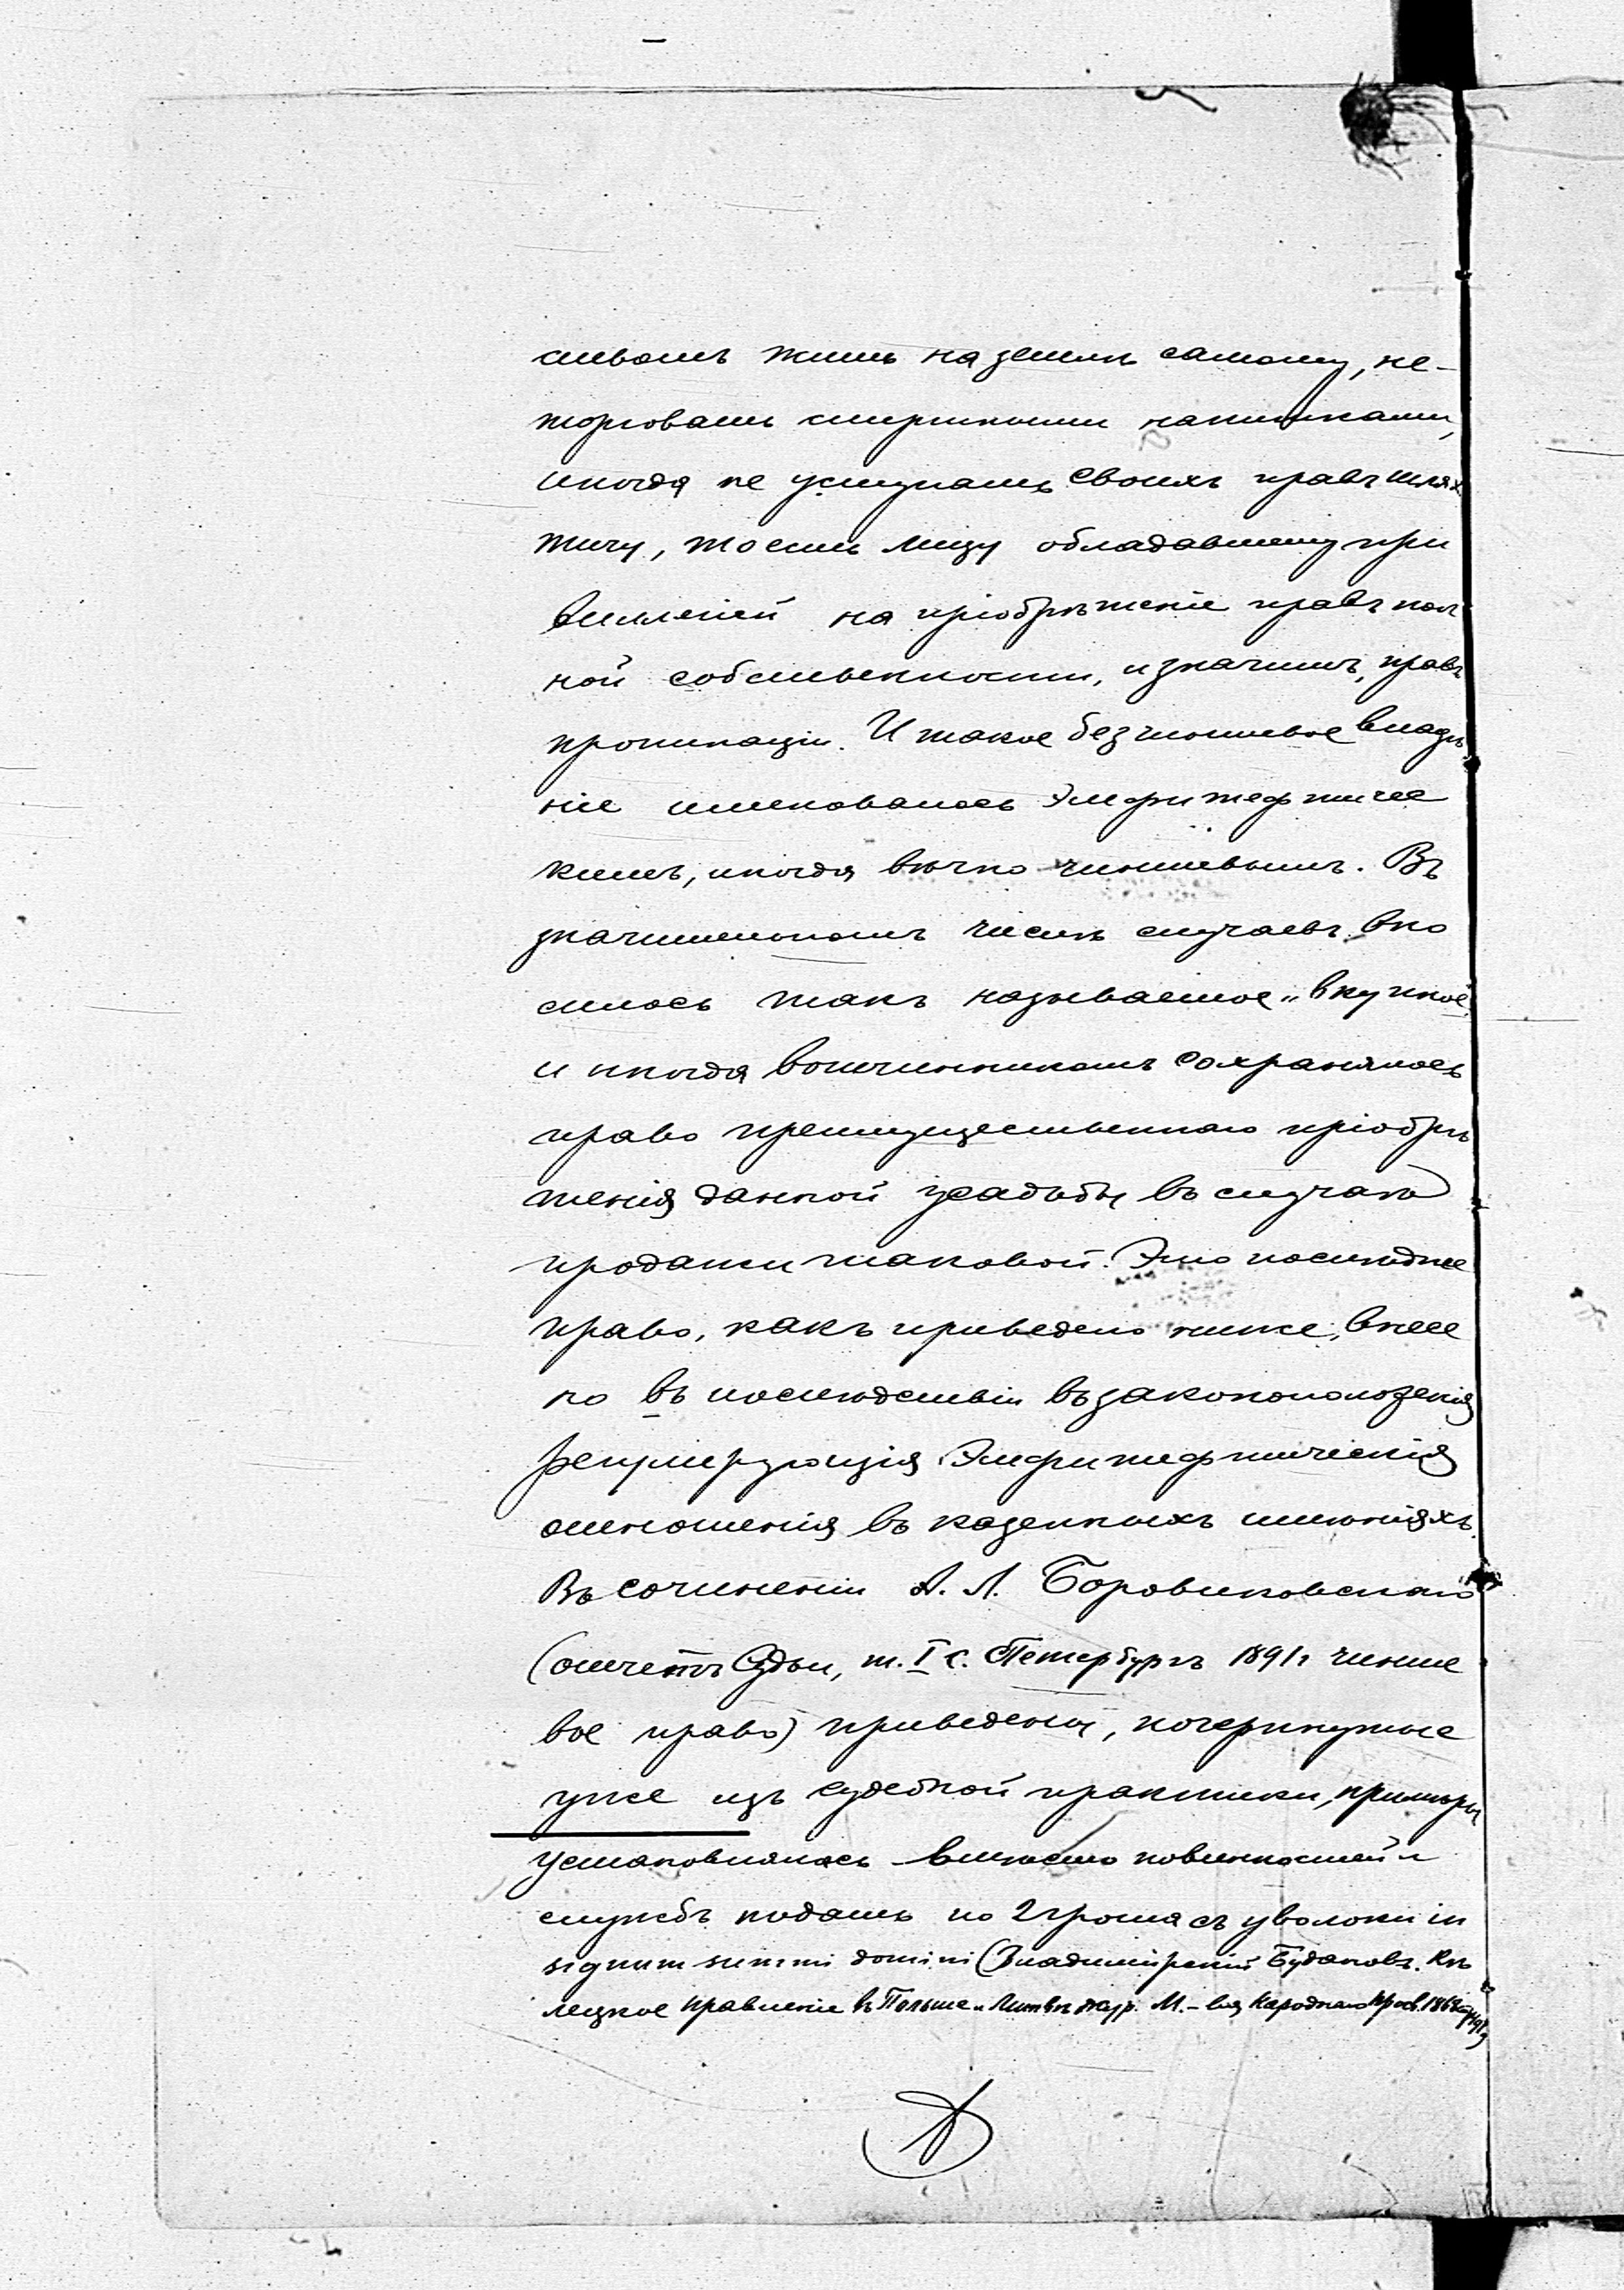 ствомъ жить на земли самому, не-
торговать спиртными напитками,
иногда не уступать своихъ правъ шлях
тичу, то есть лицу обладавшему при
вилегіей на пріобрѣтеніе правъ пол
ной собственности, и значитъ, правъ
пропинаціи. И такое безчиншевое владѣ
ніе именовалось Эмфитефтичес
кимъ, иногда вѣчно чиншевымъ. Въ
значительномъ числѣ случаевъ вно
силось такъ называемое „вкупное"
и иногда вотчинникомъ сохранялось
право преимущественнаго пріобрѣ
тенія данной усадьбы въ случаѣ
продажи таковой. Это последнее
право, какъ приведено ниже, внесе
но въ последствіи въ законоположенія
регулирующія Эмфитефтическія
отношенія въ казенныхъ имѣніяхъ.
Въ сочиненіи А. Л. Боровиковскаго
(отчетъ Судьи, т. I С. Петербургъ 1891г чинше
вое право) приведены, почерпнутые
уже изъ судебной практики, примѣры
установлялась вмѣсто повинностей и
службъ подать по 2 гроша съ уволоки in
signum summi domini (Владимірскій Будановъ. Нѣ
мецкое право въ Польше и Литвѣ жур. М.-ва Народнаго Просв. 1868